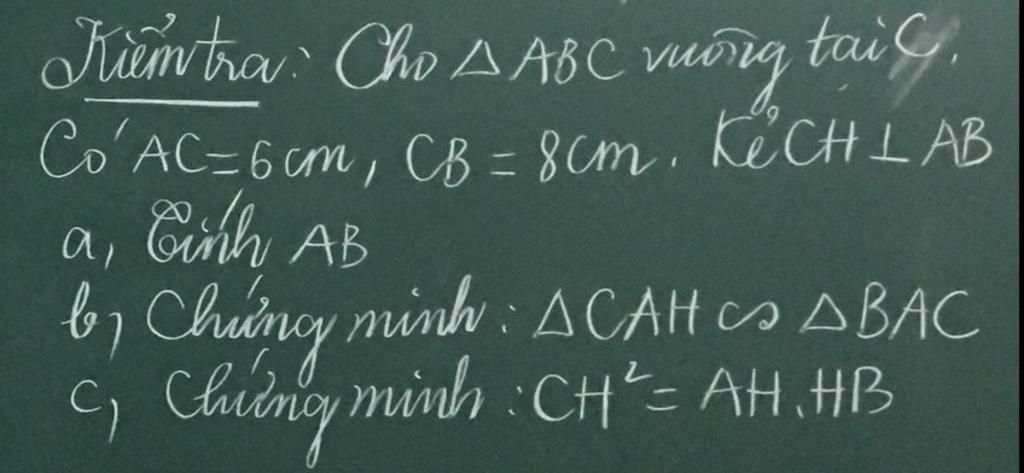 Kiểm tra: Cho △ ABC vuông tại C.
Có AC = 6 cm, CB = 8 cm. Kẻ CH ⊥ AB
a, Tính AB
b, Chứng minh: △CAH ∽ △BAC
c, Chứng minh: CH² = AH.HB